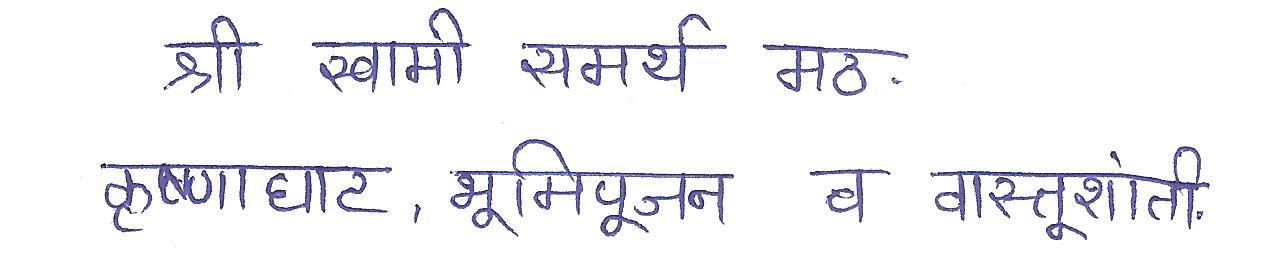 श्री स्वामी समर्थ मठ.
कृष्णाघाट, भूमिपूजन व वास्तूशांती.